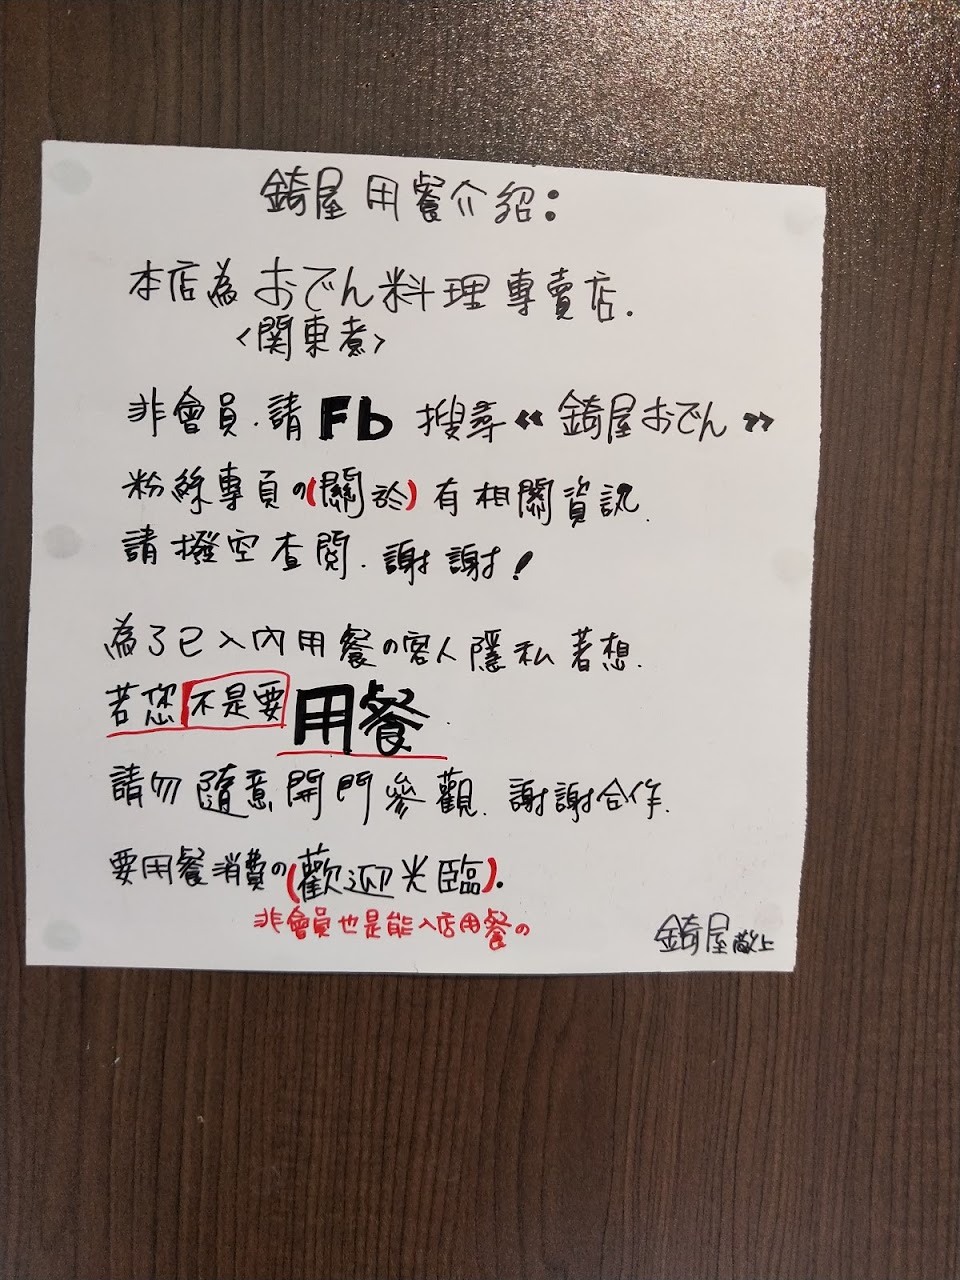 錡屋 用餐介紹：
本店為 おでん料理專賣店.
<関東煮>
非會員.請 Fb 搜尋《錡屋おでん》
粉絲專頁の(關於)有相關資訊.
請撥空查閱.謝謝!
為了已入內用餐の客人隱私著想.
若您不是要用餐.
請勿隨意開門參觀.謝謝合作.
要用餐消費の(歡迎光臨).
非會員也是能入店用餐の
錡屋 敬上